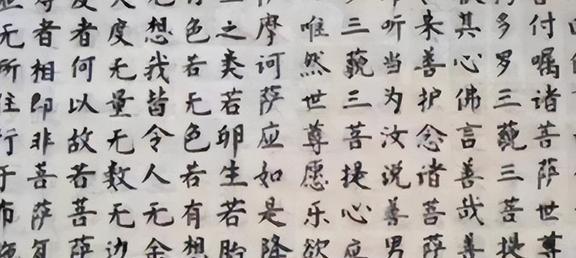 付嘱诸菩萨世尊
多罗三藐三菩提
其心佛言善哉善
来善护念诸菩萨
听当为汝说善男
三藐三菩提心应
唯然世尊愿乐欲
摩诃萨应如是降
之类若卵生若胎
色若无色若有想
想我皆令人无余
度无量无数无边
者何以故若菩萨
者相即非菩萨复
无所住行于布施